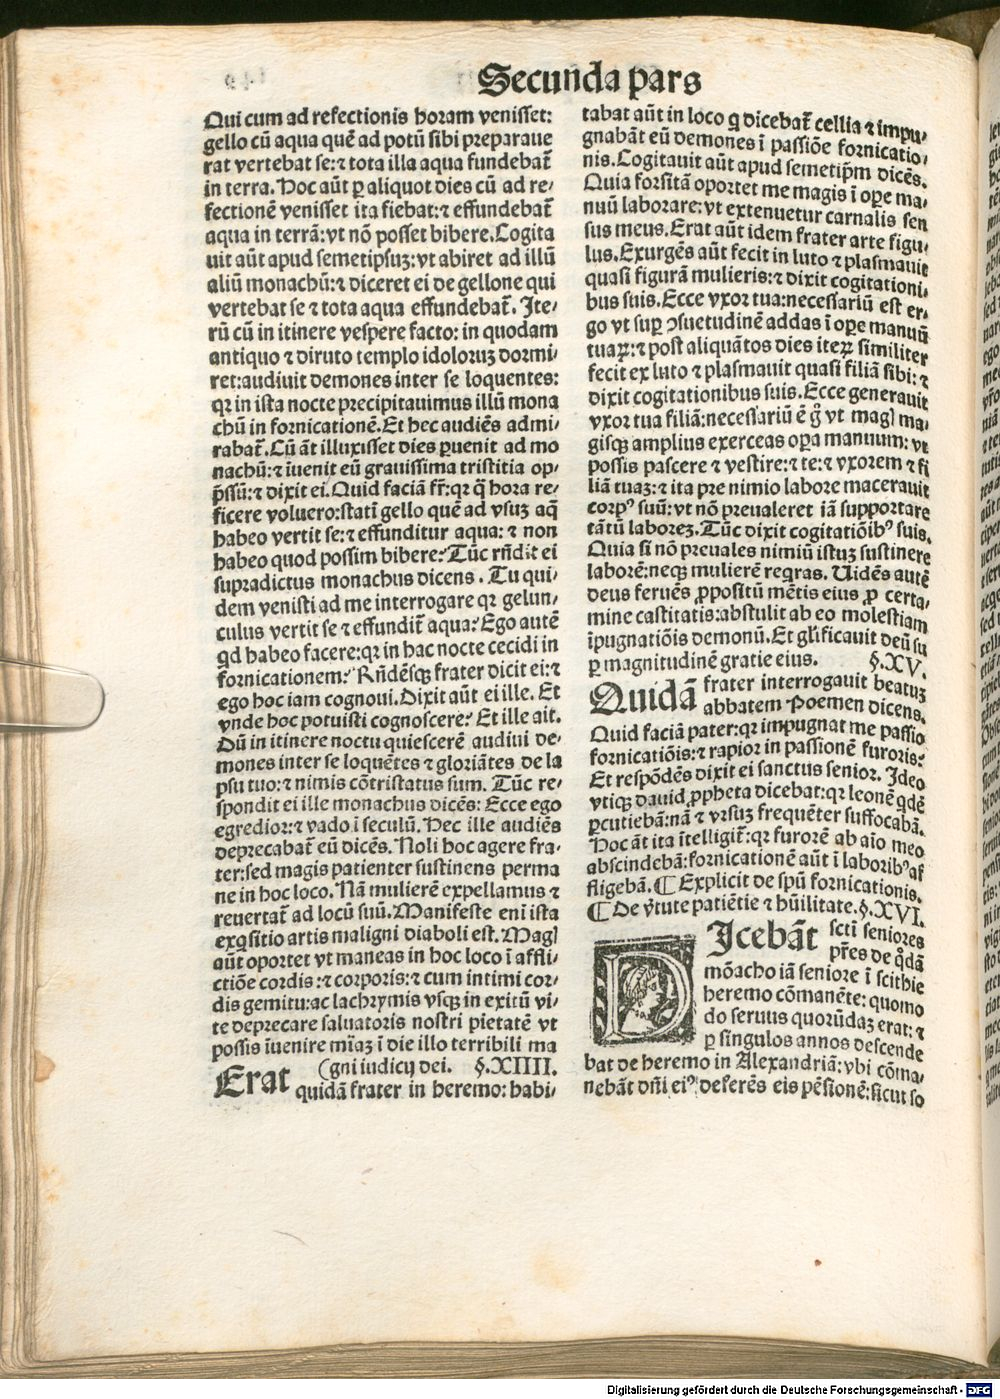 Secunda pars
Qui cum ad refectionis horam venisset:
gello cū aqua quē ad potū sibi preparaue
rat vertebat se:⁊ tota illa aqua fundebat̄
in terra. Hoc aūt ꝑ aliquot dies cū ad re-
fectionē venisset ita fiebat:⁊ effundebat̄
aqua in terrā: vt nō posset bibere. Cogita
uit aūt apud semetipsuꝫ: vt abiret ad illū
aliū monachū:⁊ diceret ei de gellone qui
vertebat se ⁊ tota aqua effundebat̄. Ite-
rū cū in itinere vespere facto: in quodam
antiquo ⁊ diruto templo idoloruꝫ dormi-
ret: audiuit demones inter se loquentes:
qꝛ in ista nocte precipitauimus illū mona
chū in fornicationē. Et hec audiēs admi-
rabat̄. Cū āt illuxisset dies ꝑuenit ad mo
nachū:⁊ īuenit eū grauissima tristitia op-
p̄ssū:⁊ dixit ei. Quid faciā fr̄: qꝛ q̄ hora re-
ficere voluero: stati̅ gello quē ad vsuꝫ aq̄
habeo vertit se:⁊ effunditur aqua: ⁊ non
habeo quod possim bibere: Tūc rn̄dit ei
supradictus monachus dicens. Tu qui-
dem venisti ad me interrogare qꝛ gelun-
culus vertit se ⁊ effundit̄ aqua: Ego autē
qd habeo facere: qꝛ in hac nocte cecidi in
fornicationem: Rn̄dēsqꝫ frater dicit ei:⁊
ego hoc iam cognoui. Dixit aūt ei ille. Et
vnde hoc potuisti cognoscere: Et ille ait.
Dū in itinere noctu quiescerē audiui de-
mones inter se loquētes ⁊ gloriātes de la
psu tuo:⁊ nimis cōtristatus sum. Tūc re-
spondit ei ille monachus dicēs: Ecce ego
egredior:⁊ vado ī seculū. Hec ille audiēs
deprecabat̄ eū dicēs. Noli hoc agere fra-
ter: sed magis patienter sustinens perma
ne in hoc loco. Nā mulierē expellamus ⁊
reuertat̄ ad locū suū. Manifeste eni ista
exqsitio artis maligni diaboli est. Magꝭ
aūt oportet vt maneas in hoc loco ī affli-
ctiōe cordis:⁊ corporis:⁊ cum intimi cor-
dis gemitu: ac lachrymis vsqꝫ in exitū vi-
te deprecare saluatoris nostri pietatē vt
possis īuenire mīaꝫ ī die illo terribili ma
(gni iudicij dei. §.XIIII.
Erat quidā frater in heremo: habi-
tabat aūt in loco q dicebat̄ cellia ⁊ impu-
gnabāt eū demones ī passiōe fornicatio-
nis. Cogitauit aūt apud semetip̄m dicēs.
Quia forsitā oportet me magis ī oꝑe ma-
nuū laborare: vt extenuetur carnalis sen
sus meus. Erat aūt idem frater arte figu-
lus. Exurgēs aūt fecit in luto ⁊ plasmauit
quasi figurā mulieris:⁊ dixit cogitationi-
bus suis. Ecce vxor tua: necessariū est er-
go vt suꝑ ꝯsuetudinē addas ī oꝑe manuū
tuaꝝ:⁊ post aliquātos dies iteꝝ similiter
fecit ex luto ⁊ plasmauit quasi filiā sibi: ⁊
dixit cogitationibus suis. Ecce generauit
vxor tua filiā: necessariū ē gͦ vt magꝭ ma-
gisqꝫ amplius exerceas oꝑa manuum: vt
possis pascere ⁊ vestire:⁊ te:⁊ vxorem ⁊ fi
liā tuaꝫ:⁊ ita pre nimio labore macerauit
corpꝰ suū: vt nō preualeret iā supportare
tātū laboreꝫ. Tūc dixit cogitatiōibꝰ suis.
Quia si nō preuales nimiū istuꝫ sustinere
laborē: neqꝫ mulierē reqras. Uidēs autē
deus feruēs ꝓpositū mētis eius ꝓ certa-
mine castitatis: abstulit ab eo molestiam
īpugnatiōis demonū. Et gl̄ificauit deū su
ꝑ magnitudinē gratie eius. §.XV.
Quidā frater interrogauit beatuꝫ
abbatem Poemen dicens.
Quid faciā pater: qꝛ impugnat me passio
fornicatiōis:⁊ rapior in passionē furoris:
Et respōdēs dixit ei sanctus senior. Ideo
vtiqꝫ dauid ꝓpheta dicebat: qꝛ leonē qdē
ꝑcutiebā: nā ⁊ vrsuꝫ frequēter suffocabā.
Hoc āt ita ītelligit̄: qꝛ furorē ab aīo meo
abscindebā: fornicationē aūt ī laboribꝰ af
fligebā. ¶ Explicit de spū fornicationis.
¶ De v̄tute patiētie ⁊ hūilitate. §.XVI.
DIcebāt sctī seniores
pr̄es de qdā
mōacho iā seniore ī scithie
heremo cōmanēte: quomo
do seruus quorūdaꝫ erat: ⁊
ꝑ singulos annos descende
bat de heremo in Alexandriā: vbi cōma-
nebāt dn̄i eiꝰ: deferēs eis pēsionē: sicut so
Digitalisierung gefördert durch die Deutsche Forschungsgemeinschaft - DFG